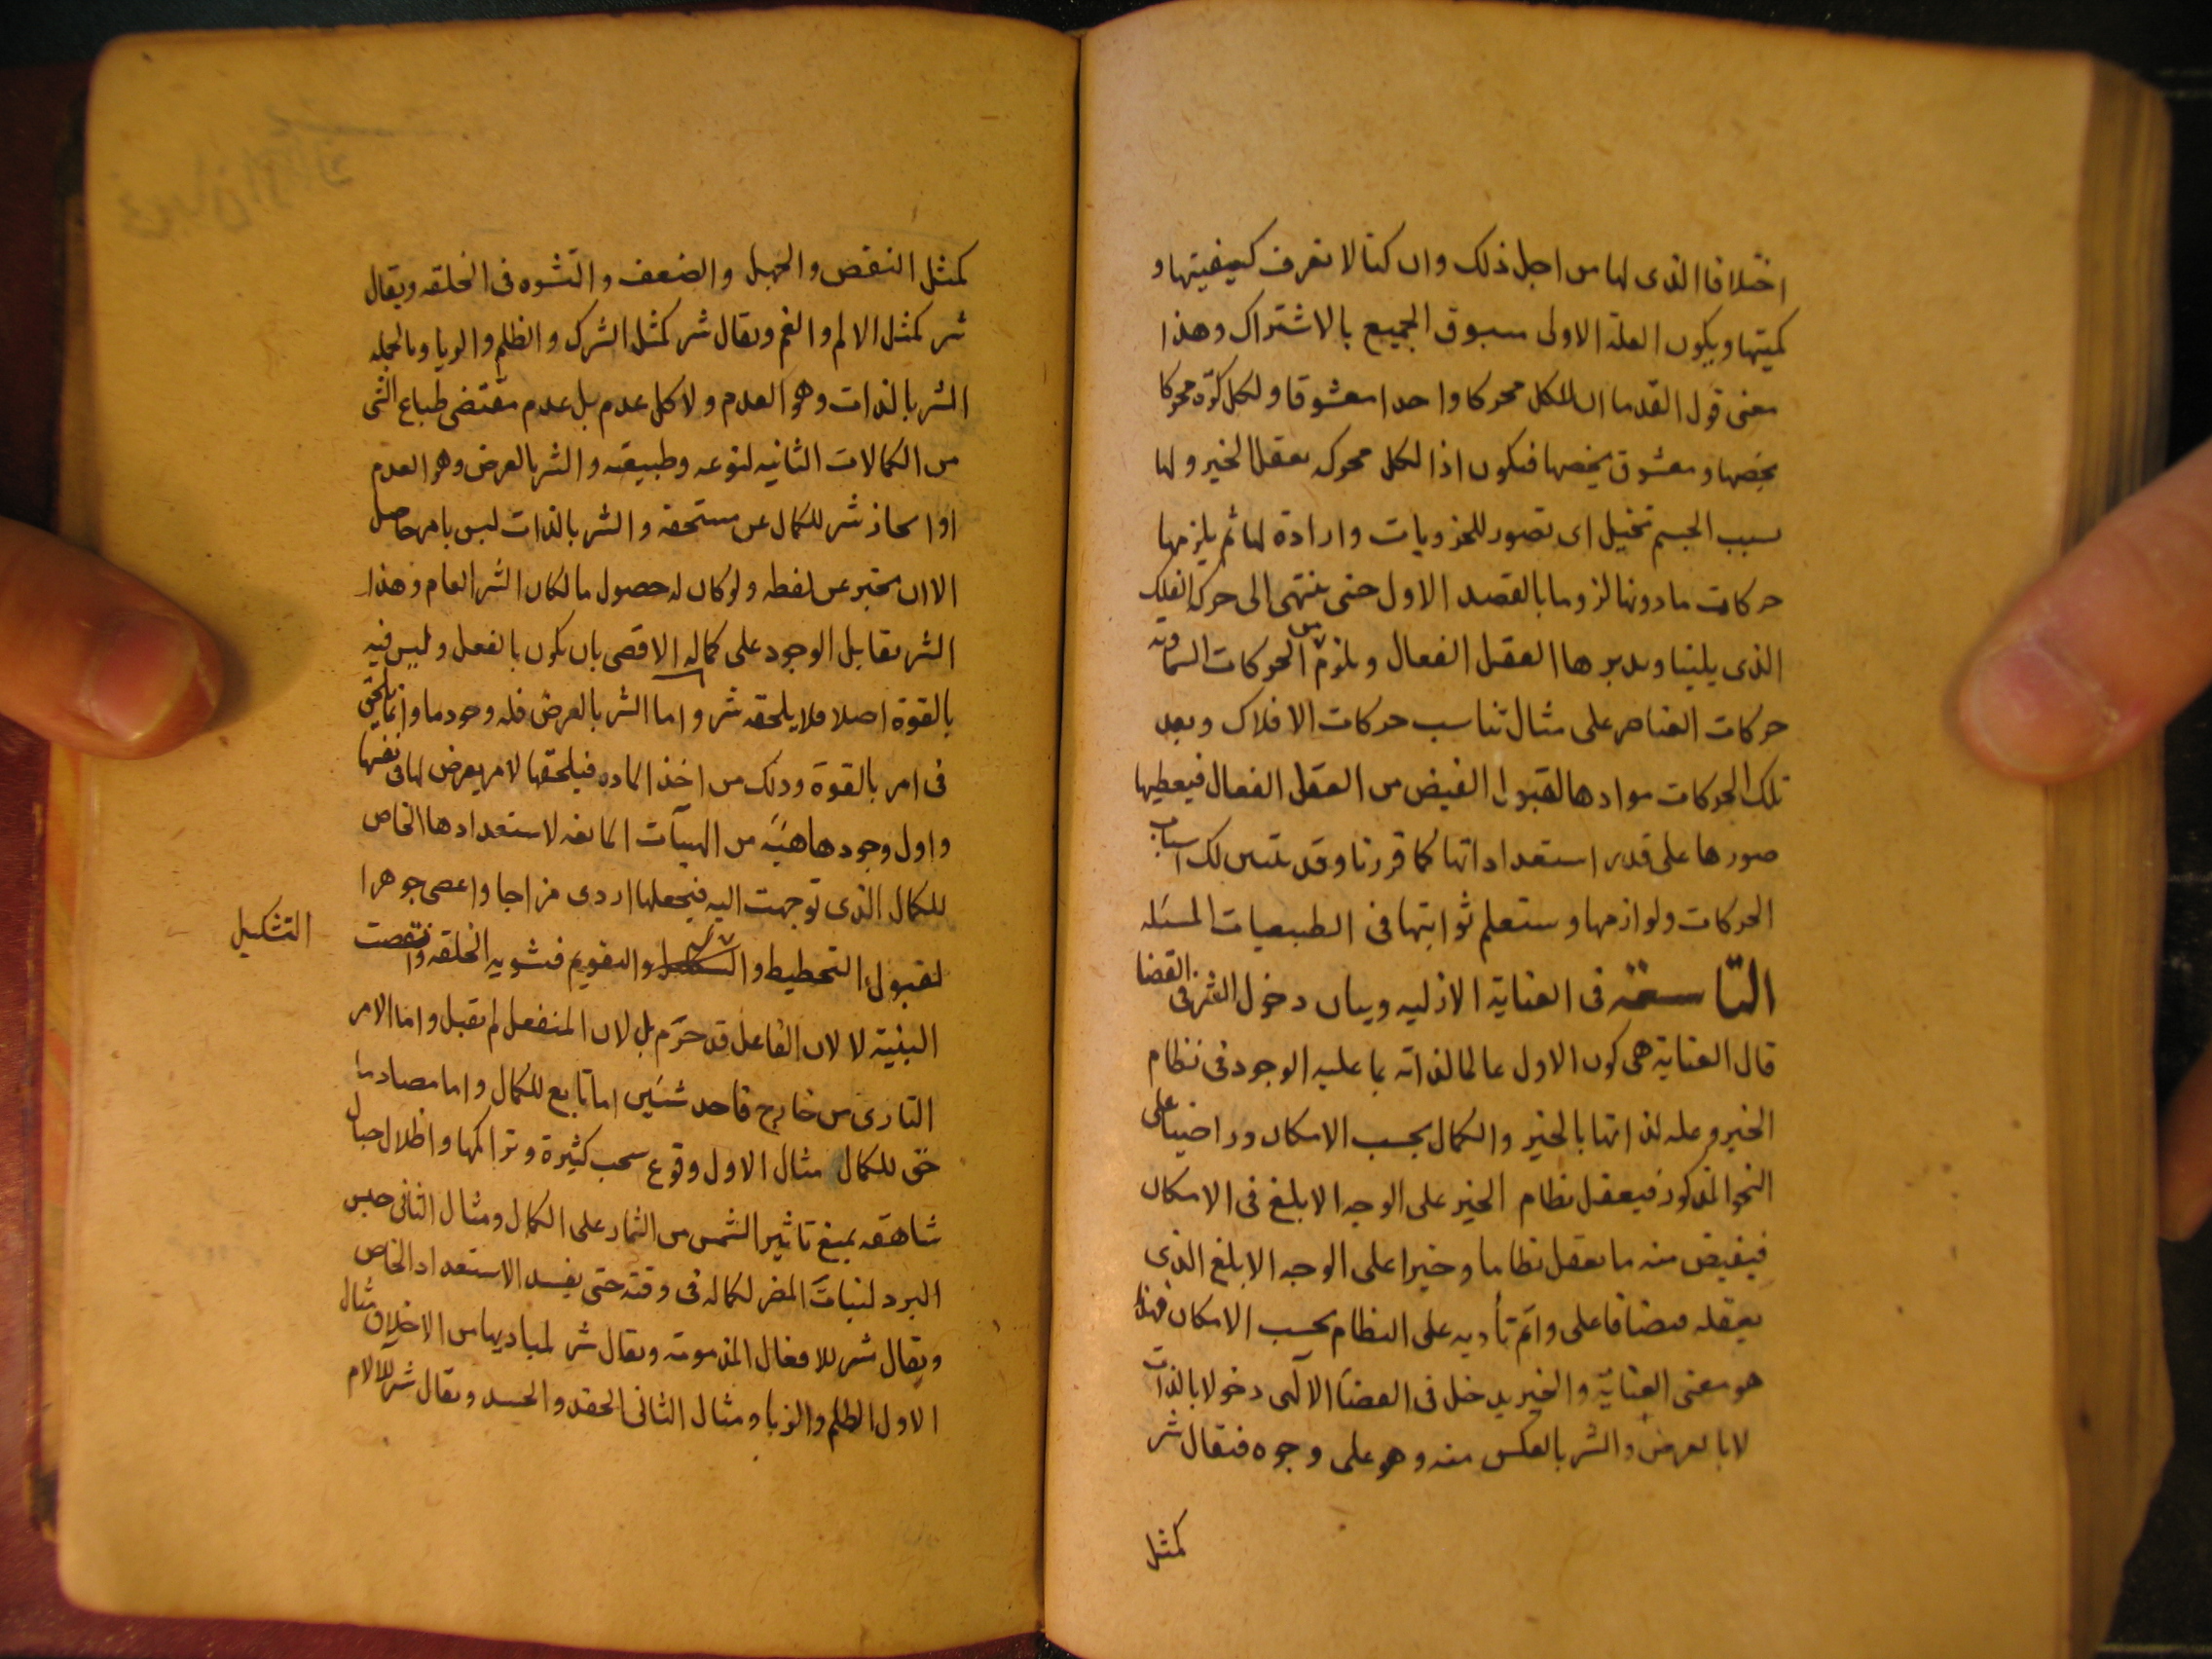 اختلافا الذى لها من اجل ذلك وان كنا لا نعرف كيفيتها و
كميتها ويكون العلة الاولى مسبوق الجميع بالاشتراك وهذا
معنى قول القدما ان للكل محركا واحدا معشوقا ولكل كرة محركا
يخصها ومعشوق يخصها فيكون اذا لكل محركه يعقل الخير ولها
بسبب الجسم تخيل اى تصور للجزويات وارادة لها ثم يلزمها
حركات ما دونها لزوما بالقصد الاول حتى ينتهى الى حركه الفلك
الذى يلينا ويدبرها العقل الفعال ويلزم من الحركات السماويه
حركات العناصر على مثال تناسب حركات الافلاك وبعد
تلك الحركات موادها لقبول الفيض من العقل الفعال فيعطيها
صورها على قدر استعداداتها كما قررنا وقد تبين لك اسباب
الحركات ولوازمها وستعلم ثوابتها فى الطبيعيات المسئله
التاسعه فى العناية الازليه وبيان دخول الشر فى القضا
قال العناية هى كون الاول عالما لذاته بما عليه الوجود فى نظام
الخير وعله لذاتها بالخير والكمال بحسب الامكان وراضيا على
النحو المذكور فيعقل نظام الخير على الوجه الابلغ فى الامكان
فيفيض منه ما يعقل نظاما وخيرا على الوجه الابلغ الذى
يعقله فيضانا على واتم تأديه على النظام بحسب الامكان فهذا
هو معنى العناية والخير يدخل فى القضا الالهى دخولا بالذات
لا بالعرض والشر بالعكس منه وهو على وجوه فيقال شر
كمثل
كمثل النقص والجهل والضعف والتشوه فى الخلقه ويقال
شر كمثل الالم والغم ويقال شر كمثل الشرك والظلم والربا وبالجمله
الشر بالذات وهو العدم ولا كل عدم بل عدم مقتضى طباع الشى
من الكمالات الثانيه لنوعه وطبيعته والشر بالعرض وهو العدم
او الحاذ شر للكمال عن مستحقه والشر بالذات ليس بامر حاصل
الا ان يخبر عن لفظه ولو كان له حصول ما لكان الشر العام وهذا
الشر يقابل الوجود على كماله الاقصى بان يكون بالفعل وليس فيه
بالقوة اصلا فلا يلحقه شر واما الشر بالعرض فله وجود ما وانما يلحق
فى امر بالقوة وذلك من اخذ الماده فيلحقها لامر يعرض لها فى نفسها
واول وجودها هيئة من الهيآت المانعه لاستعدادها الخاص
للكمال الذى توجهت اليه فيجعلها اردى مزاجا واعصى جوهرا
لقبول التخطيط والتشكيل والتقويم فتشويه الخلقه وانتقصت
التشكيل
البنية لا لان الفاعل قد حرم بل لان المنفعل لم يقبل واما الامر
الثارى من خارج فاحد شيئين اما تابع للكمال واما مصاد ما
حق للكمال مثال الاول وقوع سحب كثيرة وتراكمها واظلال جبال
شاهقه يمنع تاثير الشمس من الثمار على الكمال ومثال الثانى حبس
البرد لنبات المضر لكماله فى وقته حتى يفسد الاستعداد الخاص
ويقال شر للافعال المذمومة ويقال شر لمباديها من الاخلاق مثال
الاول الظلم والزنا ومثال الثانى الحقد والحسد ويقال شر للالام